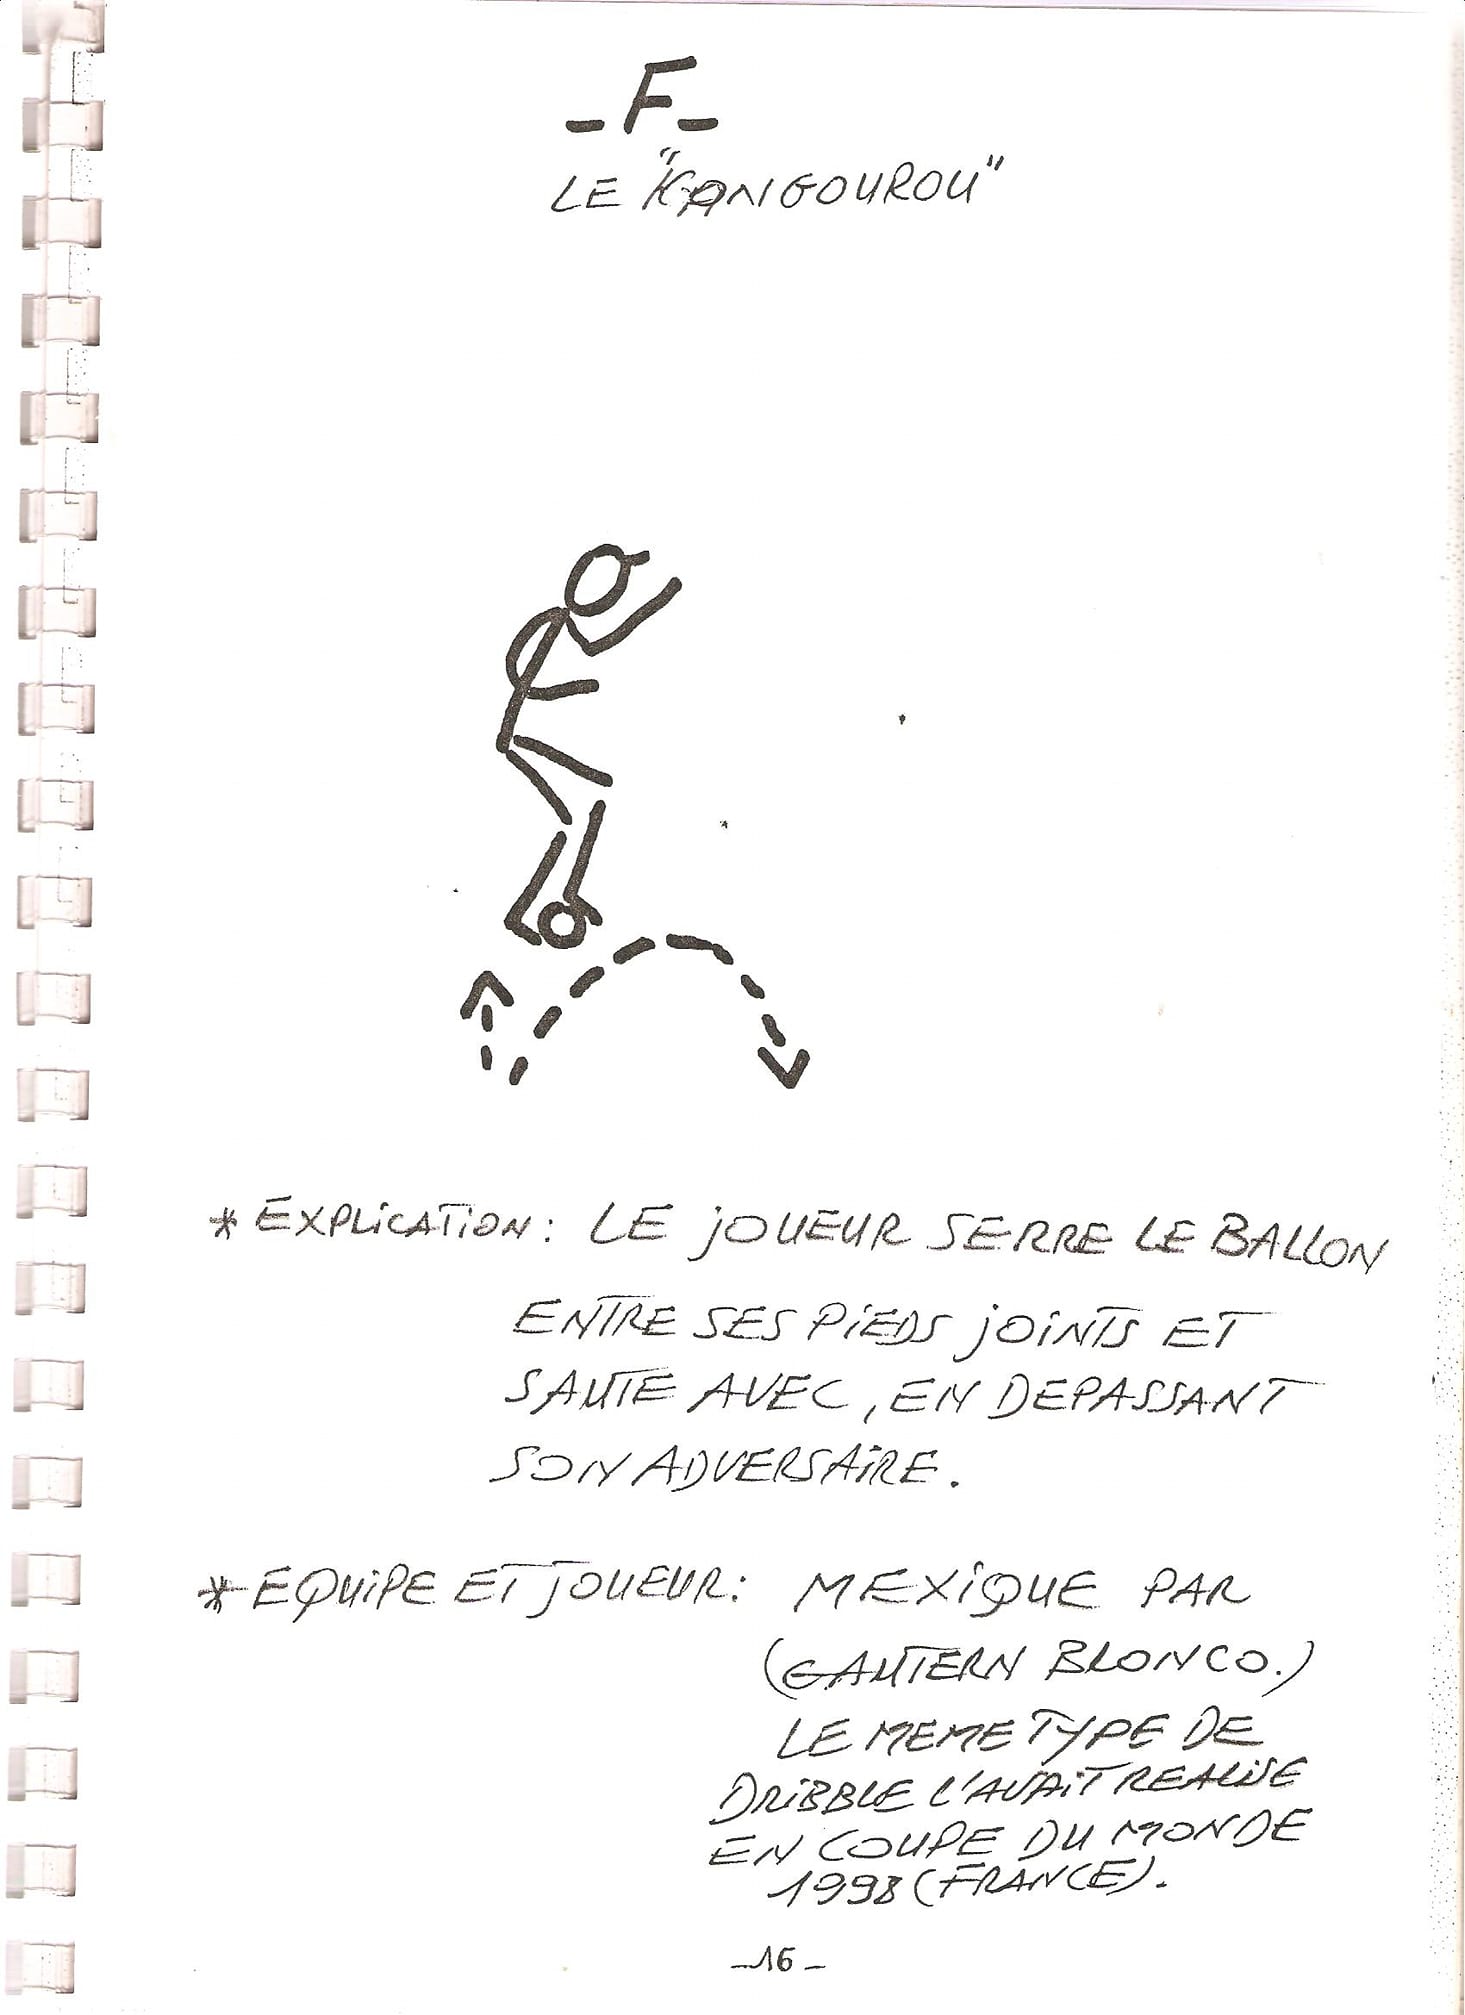 -F-
LE "KANGOUROU"
* EXPLICATION: LE JOUEUR SERRE LE BALLON
ENTRE SES PIEDS JOINTS ET
SAUTE AVEC, EN DEPASSANT
SON ADVERSAIRE.
* EQUIPE ET JOUEUR: MEXIQUE PAR
(GAUTERN BLONCO.)
LE MEME TYPE DE
DRIBBLE L'AVAIT REALISE
EN COUPE DU MONDE
1998 (FRANCE).
-16-